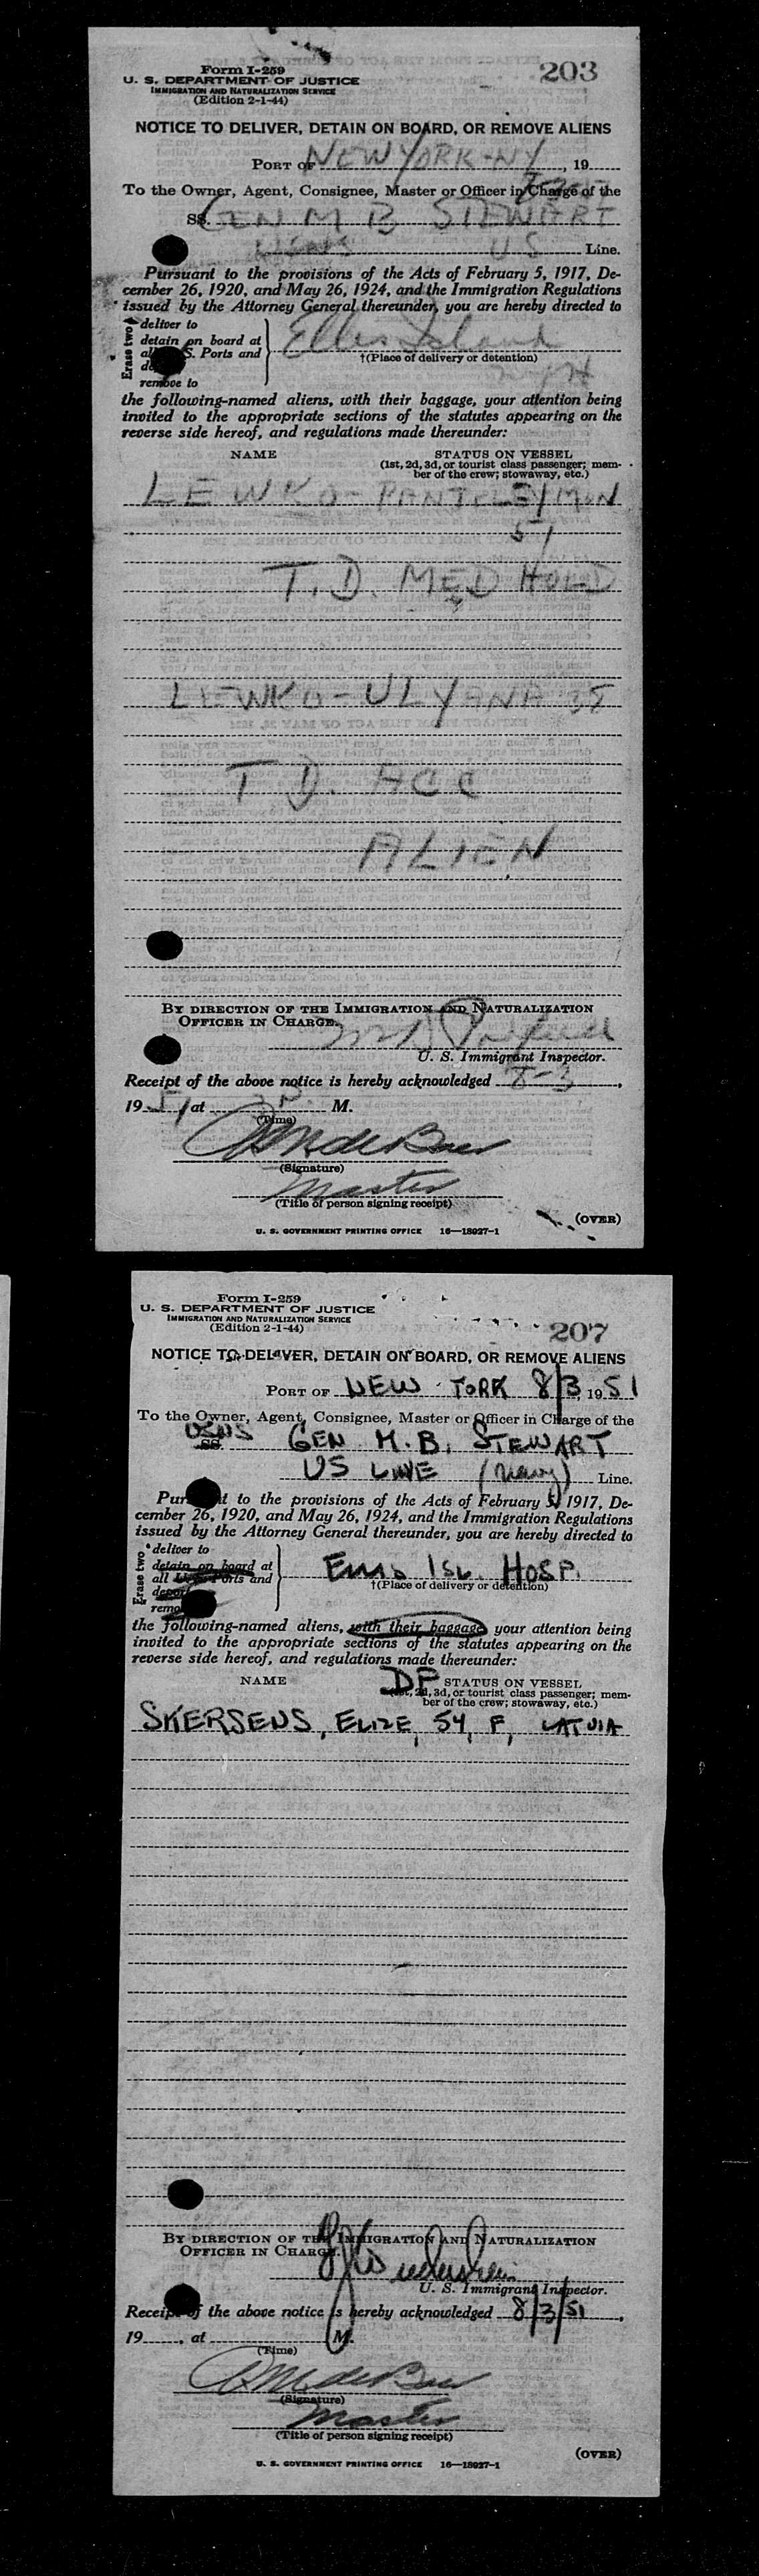 Form I-259
203
U. S. DEPARTMENT OF JUSTICE
IMMIGRATION AND NATURALIZATION SERVICE
(Edition 2-1-44)
NOTICE TO DELIVER, DETAIN ON BOARD, OR REMOVE ALIENS
PORT OF NEW YORK-NY, 19
To the Owner, Agent, Consignee, Master or Officer in Charge of the
SS. GEN M B STEWART
US Line.
Pursuant to the provisions of the Acts of February 5, 1917, De-
cember 26, 1920, and May 26, 1924, and the Immigration Regulations
issued by the Attorney General thereunder, you are hereby directed to
Erase two
deliver to
detain on board at
all S. Ports and
remove to
Ellis Island
†(Place of delivery or detention)
the following-named aliens, with their baggage, your attention being
invited to the appropriate sections of the statutes appearing on the
reverse side hereof, and regulations made thereunder:
NAME STATUS ON VESSEL
(1st, 2d, 3d, or tourist class passenger; mem-
ber of the crew; stowaway, etc.)
LEWKO-PANTELEYMON
51
T. D. MED HOLD
LEWKO-ULYANA 35
T D. ACC
ALIEN
BY DIRECTION OF THE IMMIGRATION AND NATURALIZATION
OFFICER IN CHARGE.
U. S. Immigrant Inspector.
Receipt of the above notice is hereby acknowledged 8-3,
1951 at M.
(Time)
(Signature)
Master
(Title of person signing receipt)
(OVER)
U. S. GOVERNMENT PRINTING OFFICE 16—18027-1
Form I-259
U. S. DEPARTMENT OF JUSTICE
IMMIGRATION AND NATURALIZATION SERVICE
(Edition 2-1-44)
207
NOTICE TO DELIVER, DETAIN ON BOARD, OR REMOVE ALIENS
PORT OF NEW YORK 8/3, 1951
To the Owner, Agent, Consignee, Master or Officer in Charge of the
USNS SS. GEN M. B. STEWART
US LINE (Navy) Line.
Pursuant to the provisions of the Acts of February 5, 1917, De-
cember 26, 1920, and May 26, 1924, and the Immigration Regulations
issued by the Attorney General thereunder, you are hereby directed to
Erase two
*deliver to
detain on board at
all Ports and
Ellis Isl. HOSP.
†(Place of delivery or detention)
the following-named aliens, with their baggage, your attention being
invited to the appropriate sections of the statutes appearing on the
reverse side hereof, and regulations made thereunder:
NAME DP STATUS ON VESSEL
(1st, 2d, 3d, or tourist class passenger; mem-
ber of the crew; stowaway, etc.)
SKERSENS, ELIZE, 54, F, LATVIA
BY DIRECTION OF THE IMMIGRATION AND NATURALIZATION
OFFICER IN CHARGE.
U. S. Immigrant Inspector.
Receipt of the above notice is hereby acknowledged 8/3/51,
19, at M.
(Time)
(Signature)
Master
(Title of person signing receipt)
(OVER)
U. S. GOVERNMENT PRINTING OFFICE 16—18027-1